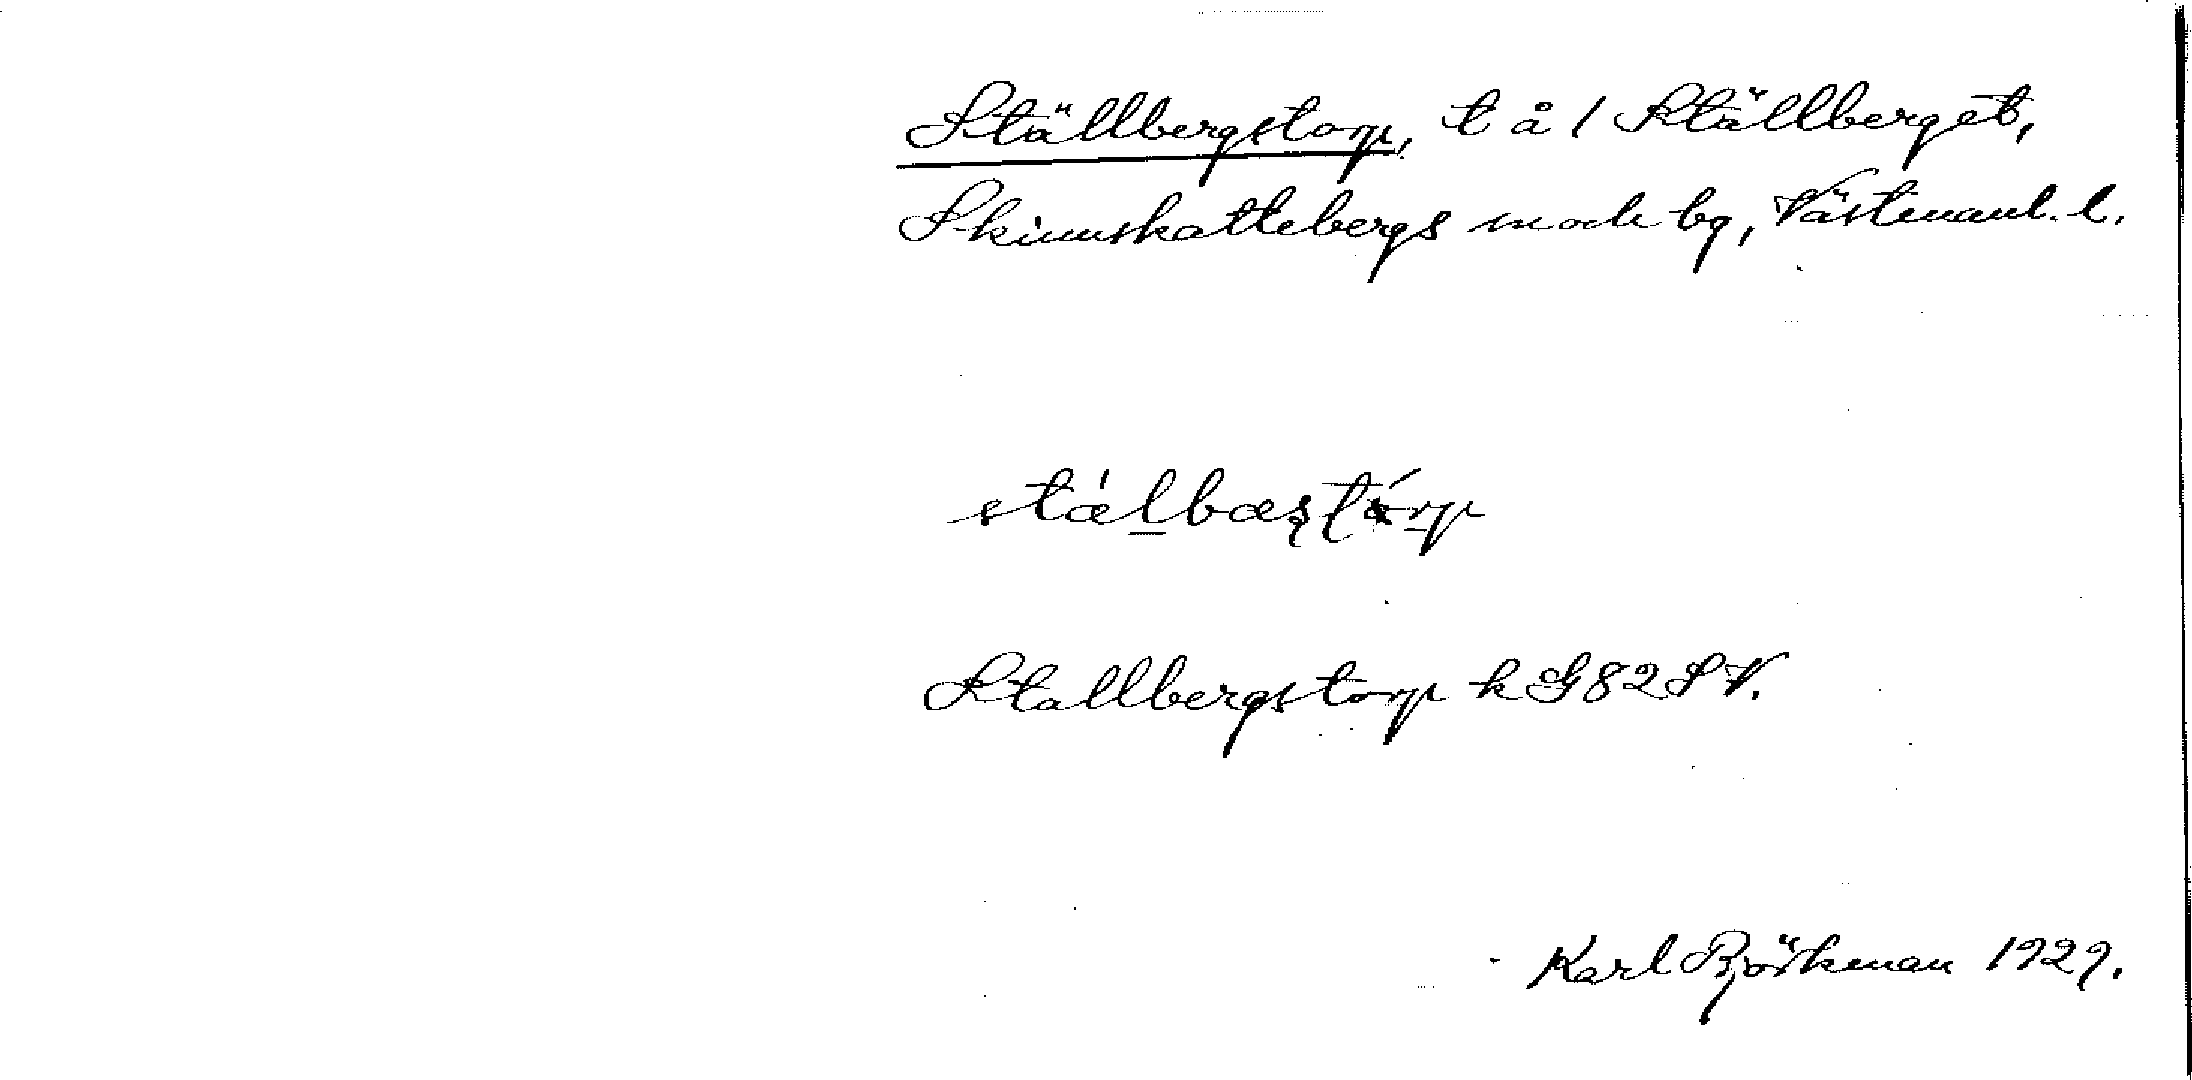 Ställbergstorp, t å 1 Ställberget,
Skinnskattebergs sn och bg, Västmanl. l.
Stallbergstorp k G82SV.
Karl Björkman 1929.